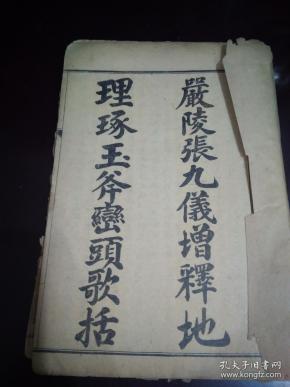 嚴陵張九儀增釋地
理琢玉斧巒頭歌括
孔夫子旧书网